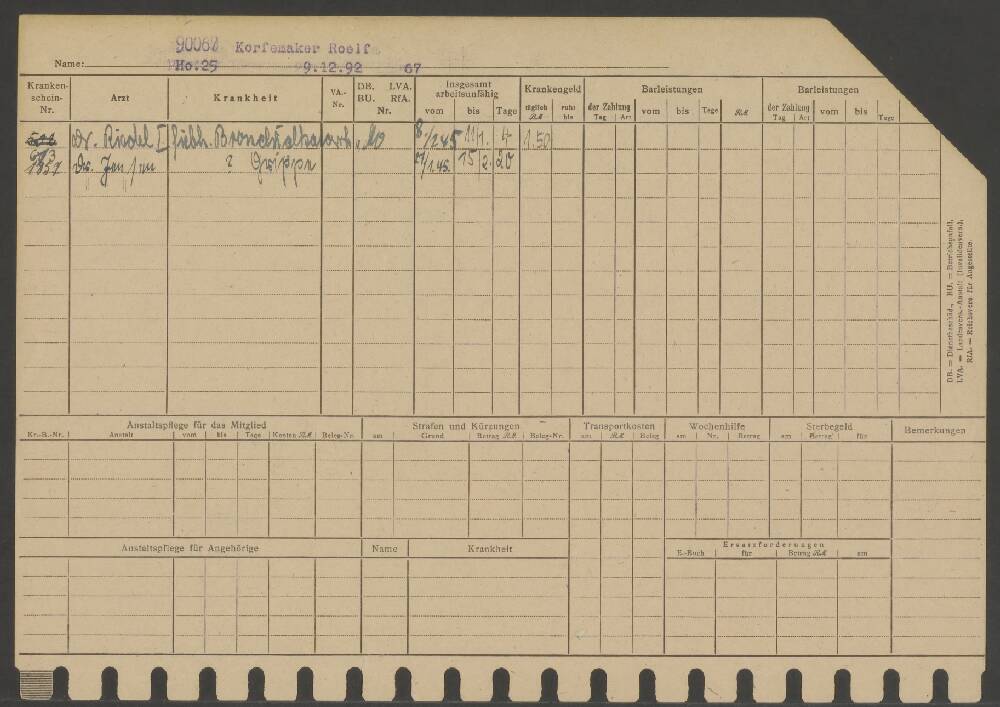 90067 Korfemaker Roelf
Name:
Ho:25 9.12.92 67
Kranken-schein-Nr. Arzt Krankheit VA.-Nr. DB. LVA. BU. RfA. Nr. Insgesamt arbeitsunfähig vom bis Tage Krankengeld täglich RM ruht bis Barleistungen der Zahlung Tag Art vom bis Tage RM Barleistungen der Zahlung Tag Art vom bis Tage
Dr. Riedel fiebh. Bronchialkatarrh 8/1.45 11/1. 4 1.50
Dr. Janssen ? Grippe 15 2. 20
DB. = Dienstbeschäd., BU. = Betriebsunfall,
LVA. = Landesvers.-Anstalt (Invalidenvers.),
RfA. = Reichsvers. für Angestellte.
Anstaltspflege für das Mitglied Strafen und Kürzungen Transportkosten Wochenhilfe Sterbegeld Bemerkungen
Kr.-B.-Nr. Anstalt vom bis Tage Kosten RM Beleg-Nr. am Grund Betrag RM Beleg-Nr. am RM Beleg am Nr. Betrag am Betrag für
Anstaltspflege für Angehörige Name Krankheit Ersatzforderungen
E.-Buch für Betrag RM am